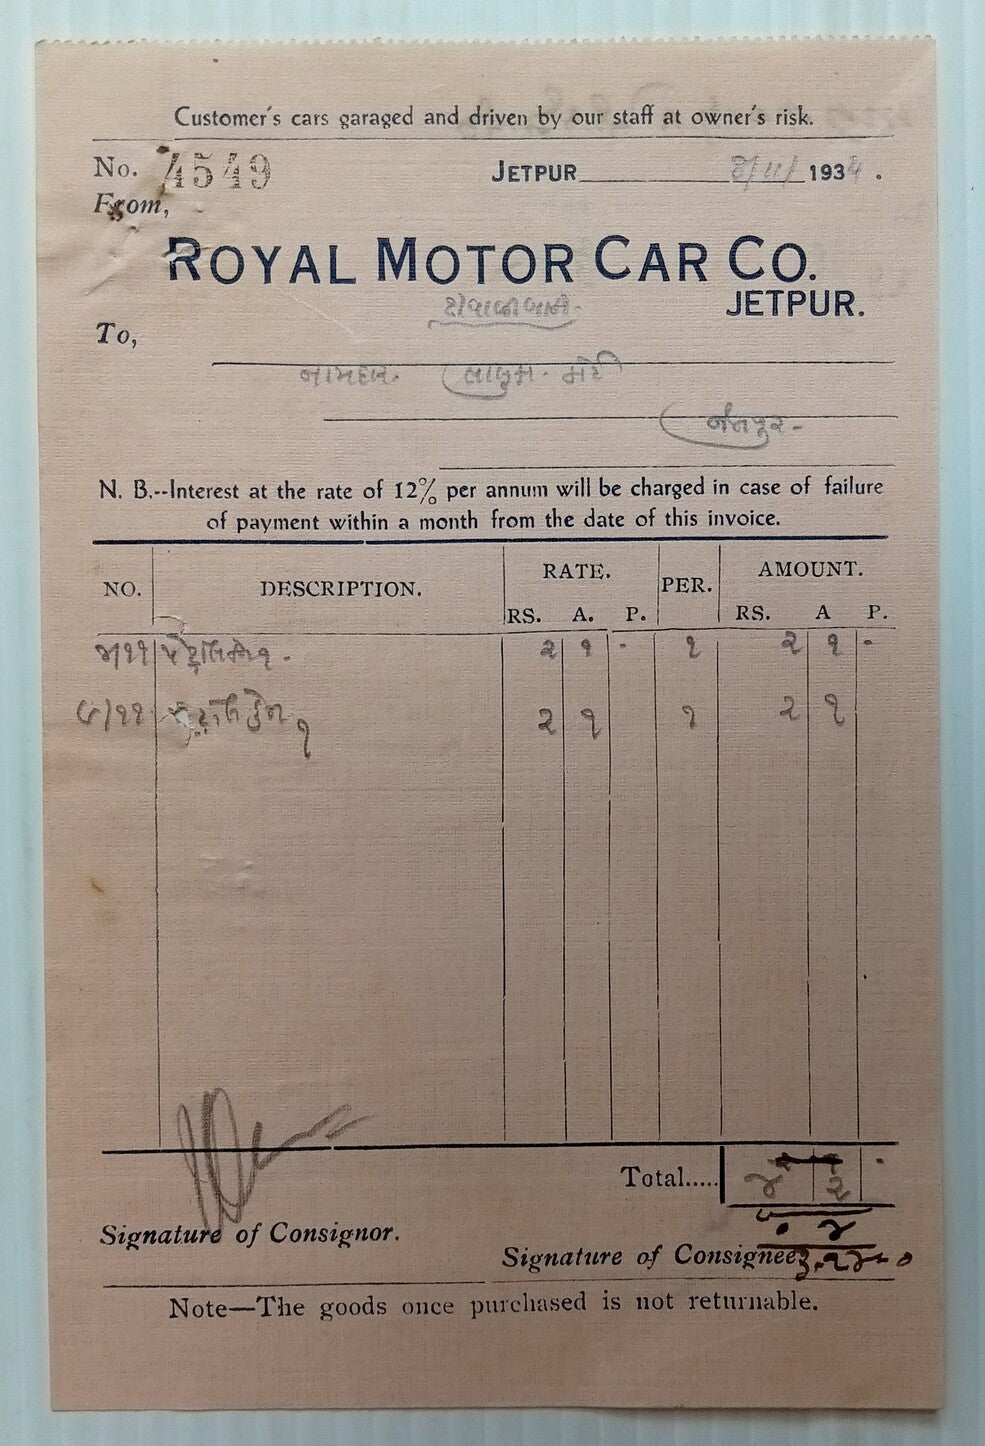 Customer's cars garaged and driven by our staff at owner's risk.
No. 4549
JETPUR 8/11/1934.
From,
ROYAL MOTOR CAR CO.
JETPUR.
To,
નામદાર
જેતપુર -
N. B.--Interest at the rate of 12% per annum will be charged in case of failure
of payment within a month from the date of this invoice.
NO. DESCRIPTION. RATE. PER. AMOUNT.
RS. A. P. RS. A P.
૪/૧૧ ૨ ૧ - ૧ ૨ ૧ -
૭/૧૧ ૨ ૧ ૧ ૨ ૧
Total..... ૪ ૨ -
Signature of Consignor.
Signature of Consignee
Note—The goods once purchased is not returnable.